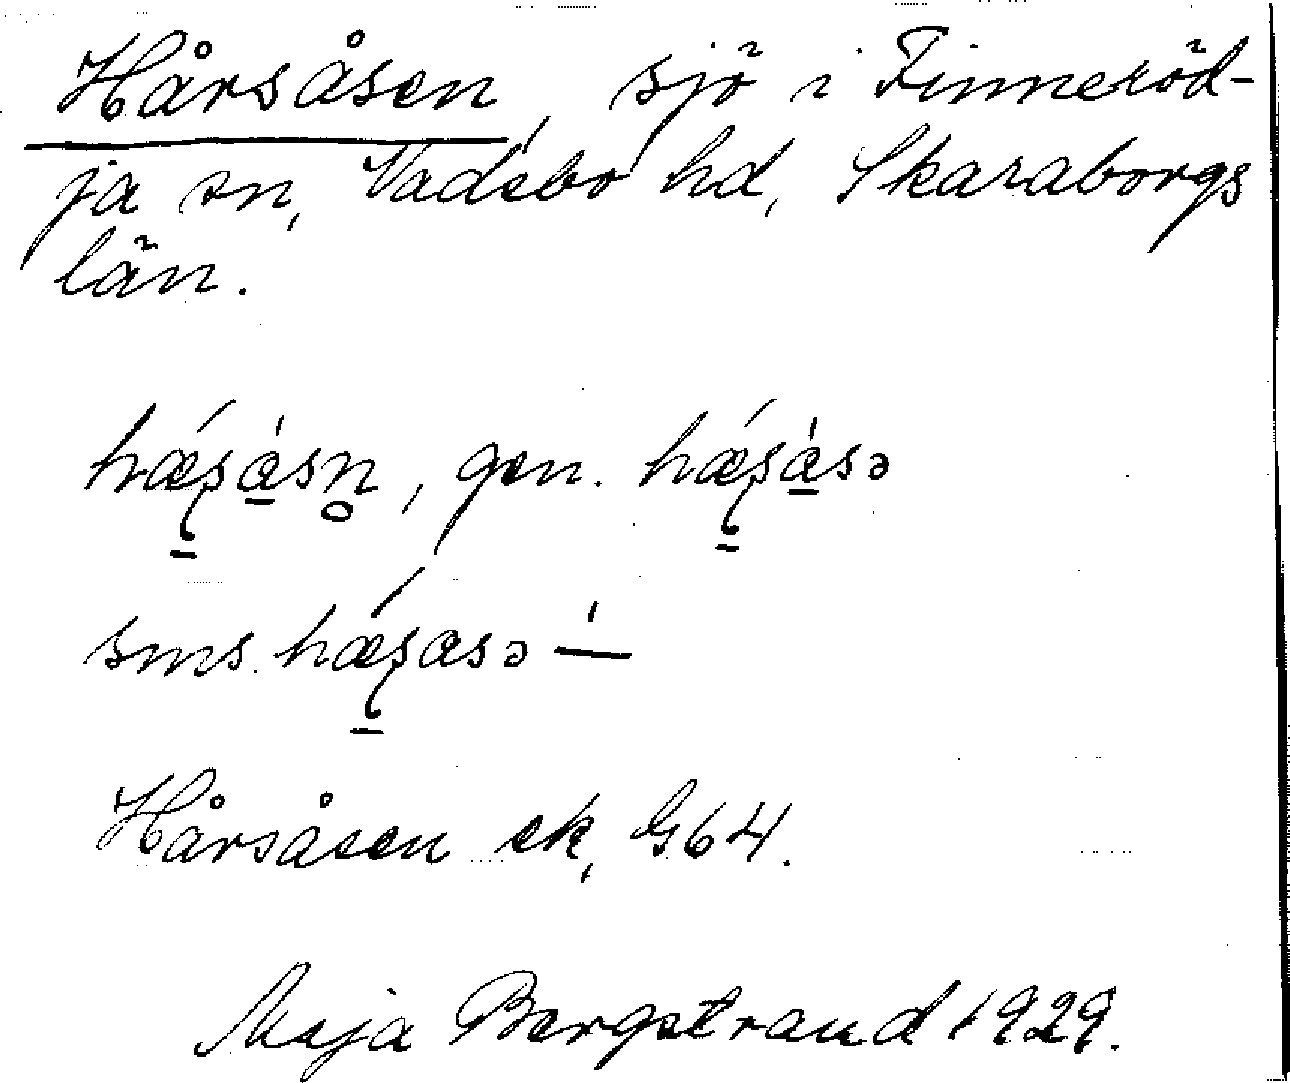 Hårsåsen, sjö i Finneröd-
ja sn, Vadsbo hd, Skaraborgs
län.
hæ̀ʂàsn̥, gen. hæ̀ʂàsə
sms. hæ̀ʂasə –
Hårsåsen ek, G64.
Maja Bergstrand 1929.